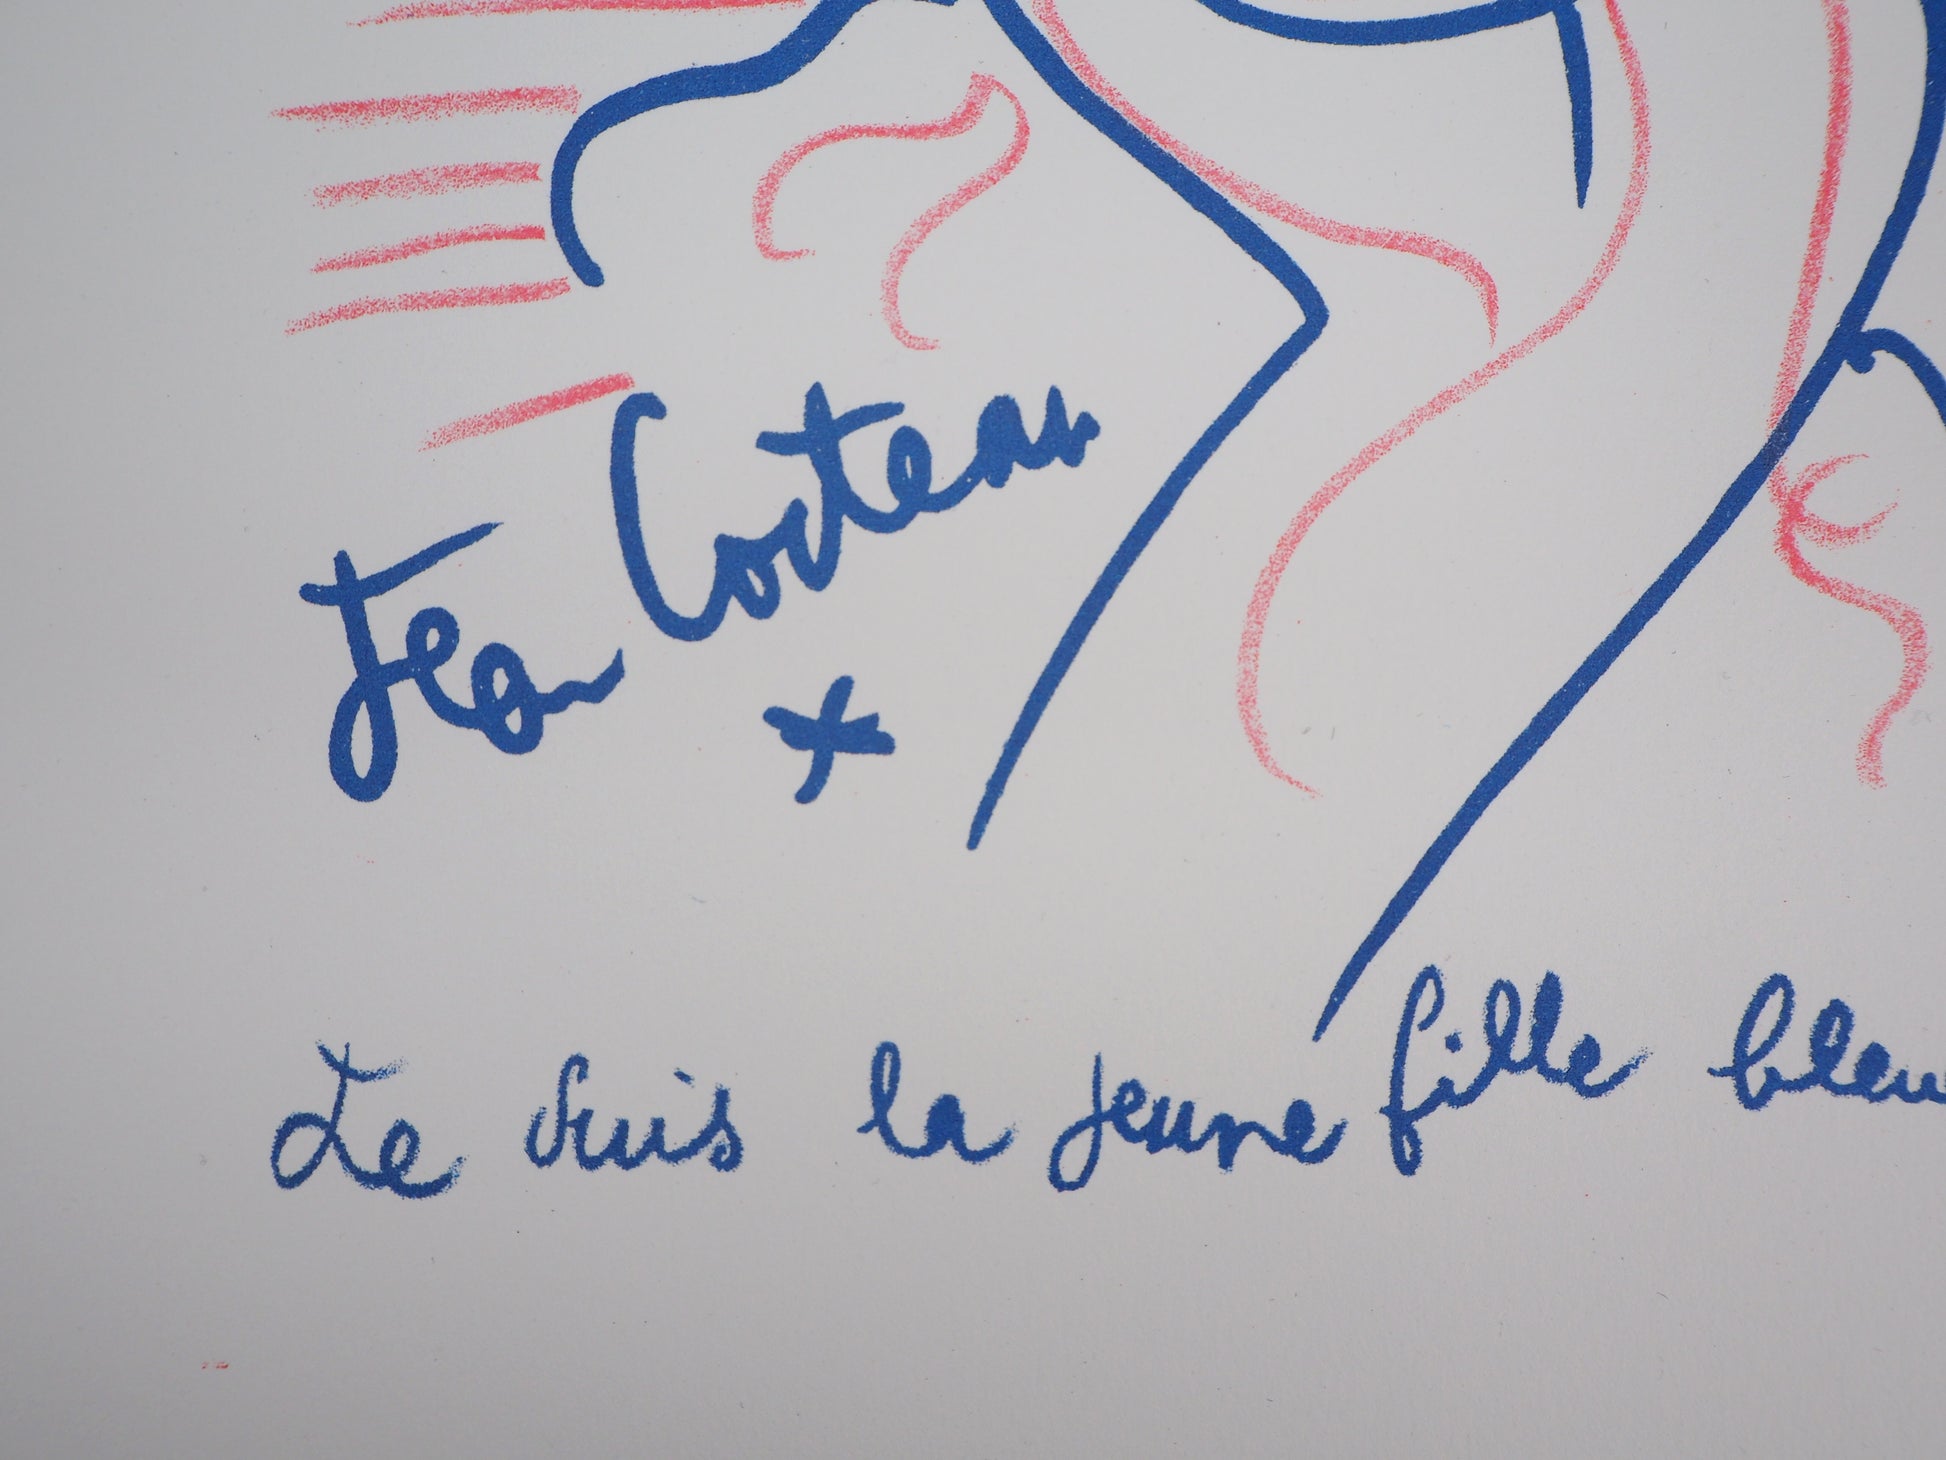 Jean Cocteau
*
Je suis la jeune fille bleu